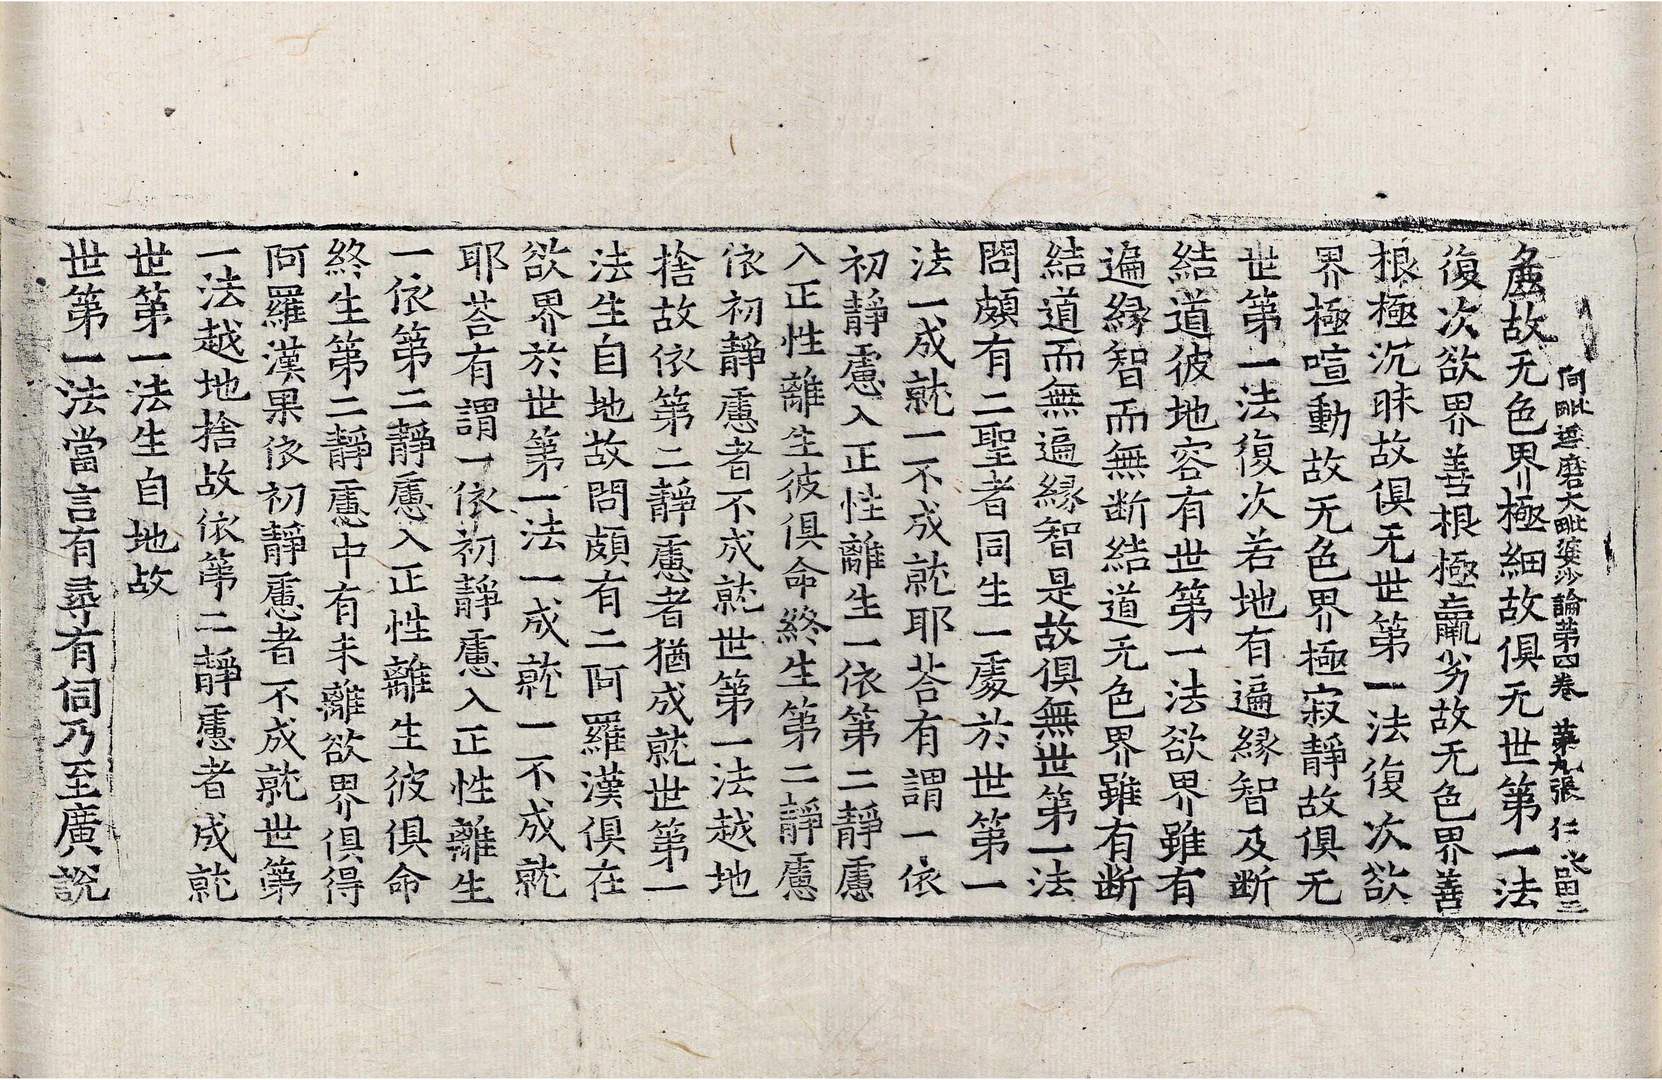 阿毗達磨大毗婆沙論第四卷 第九張 仁
麁故无色界極細故俱无世第一法
復次欲界善根極羸劣故无色界善
根極沉昧故俱无世第一法復次欲
界極喧動故无色界極寂靜故俱无
世第一法復次若地有遍縁智及断
結道彼地容有世第一法欲界雖有
遍縁智而無断結道无色界雖有断
結道而無遍縁智是故俱無世第一法
問頗有二聖者同生一處於世第一
法一成就一不成就耶荅有謂一依
初靜慮入正性離生一依第二靜慮
入正性離生彼俱命終生第二靜慮
依初靜慮者不成就世第一法越地
捨故依第二靜慮者猶成就世第一
法生自地故問頗有二阿羅漢俱在
欲界於世第一法一成就一不成就
耶荅有謂一依初靜慮入正性離生
一依第二靜慮入正性離生彼俱命
終生第二靜慮中有未離欲界俱得
阿羅漢果依初靜慮者不成就世第
一法越地捨故依第二靜慮者成就
世第一法生自地故
世第一法當言有尋有伺乃至廣說